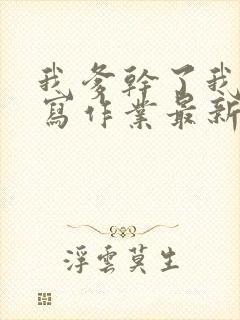 我爹幹了我
寫作業最新
浮雲莫生